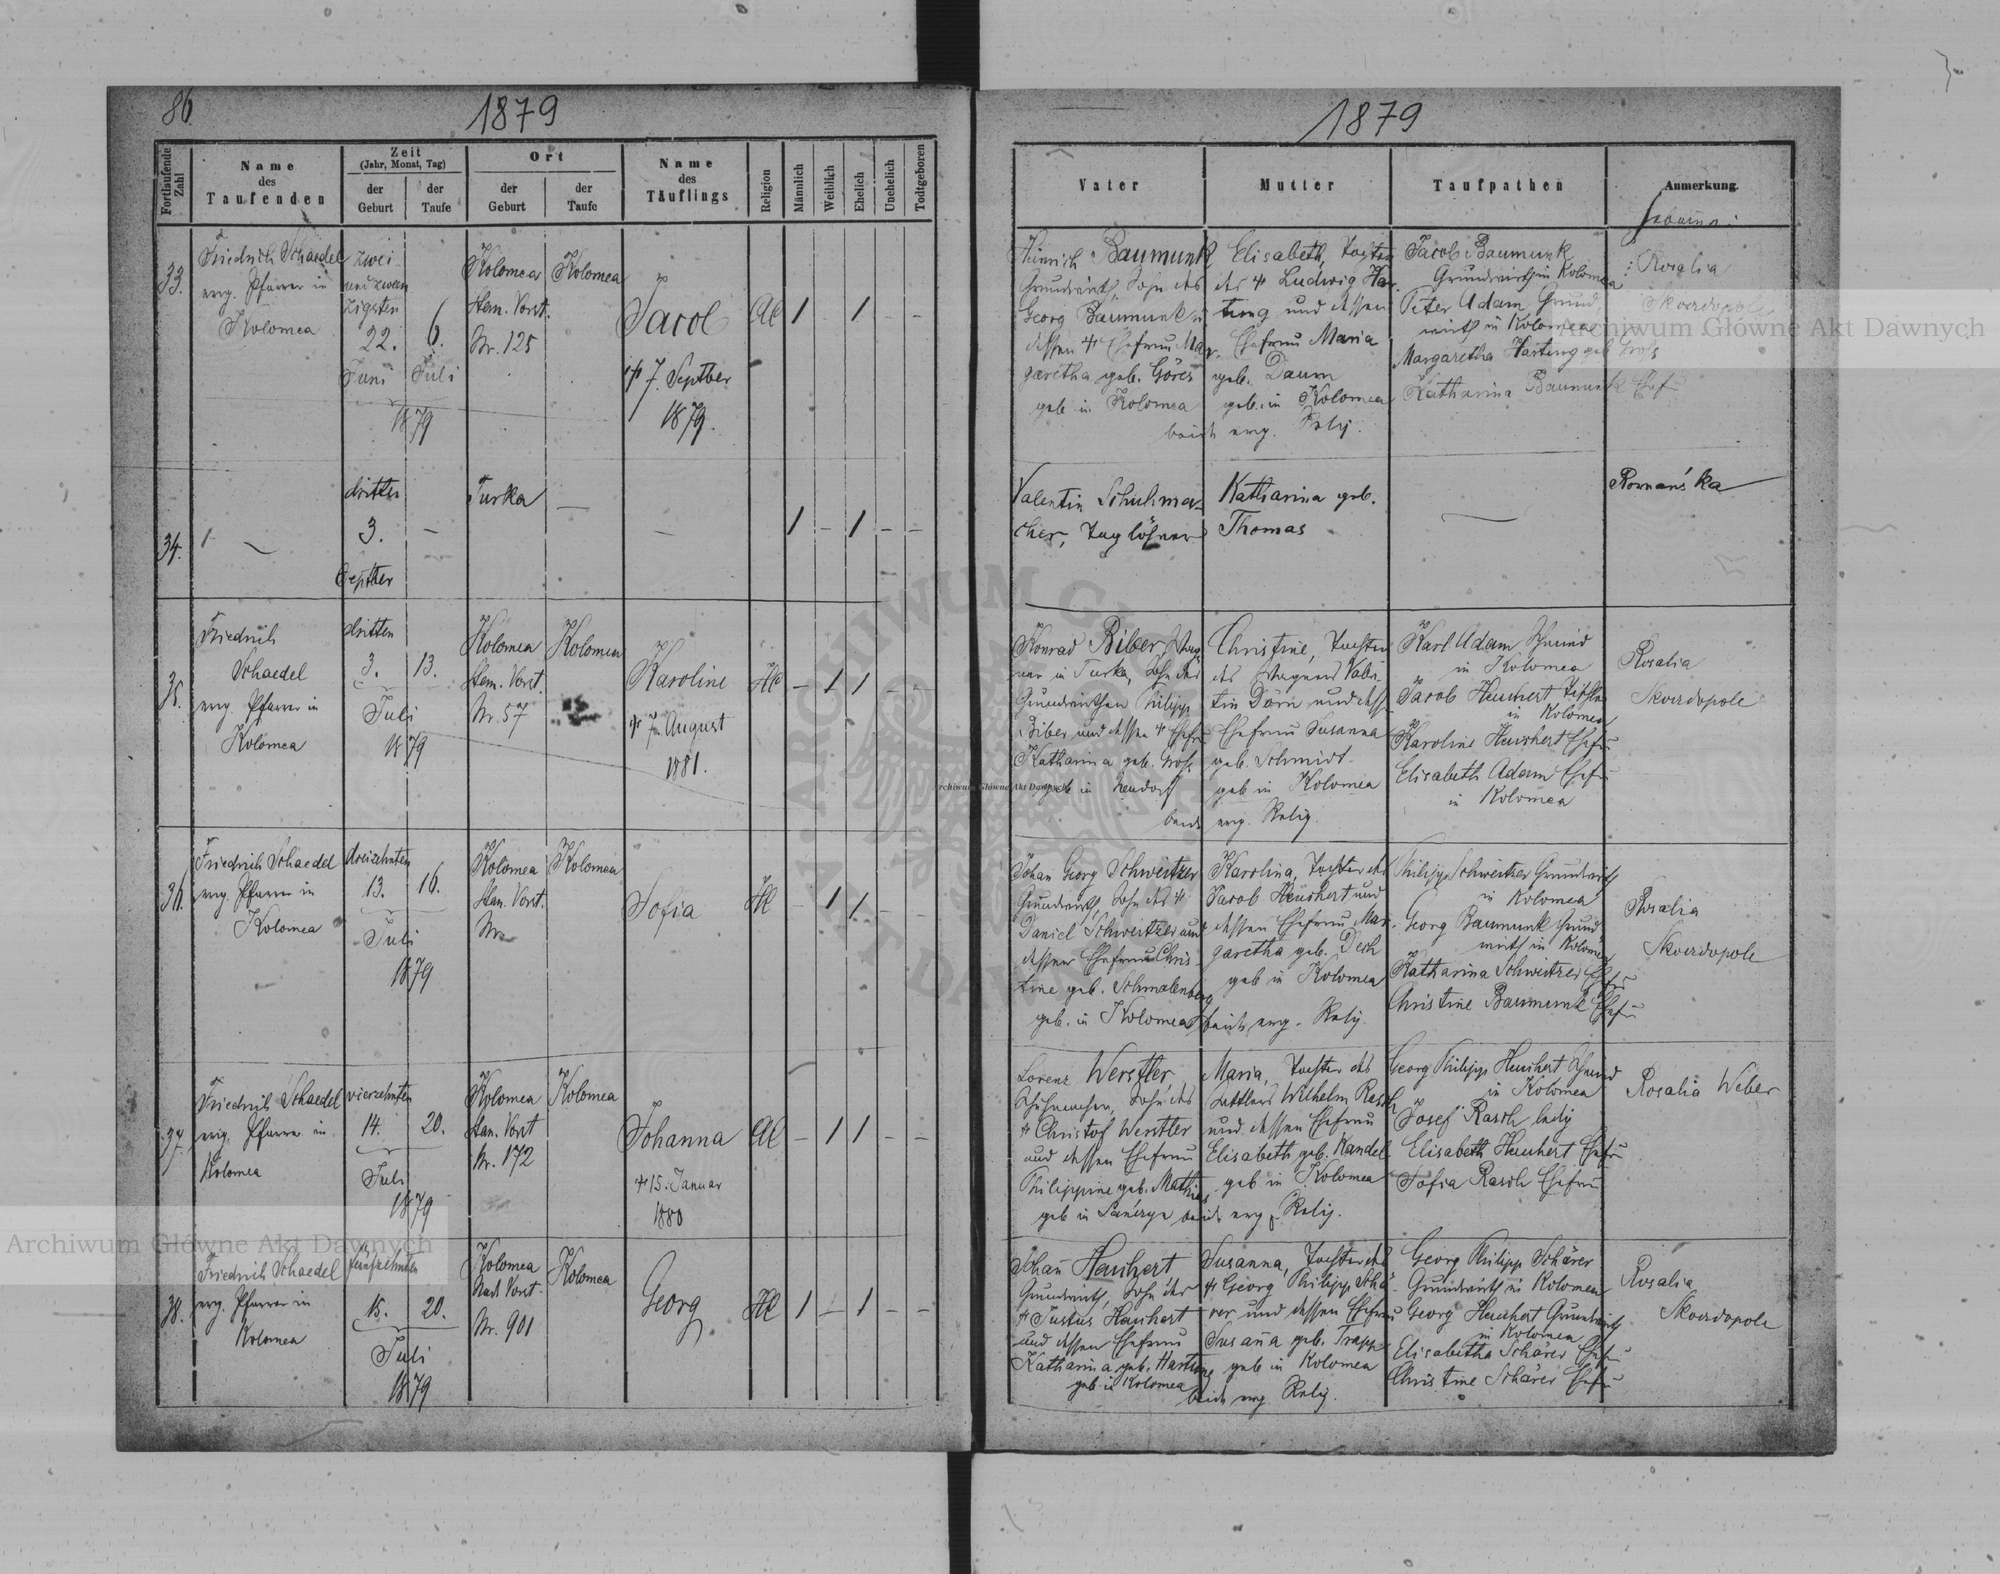 86.
1879
Fortlaufende Zahl
Name des Taufenden
Zeit
(Jahr, Monat, Tag)
der Geburt
der Taufe
Ort
der Geburt
der Taufe
Name des Täuflings
Religion
Männlich
Weiblich
Ehelich
Unehelich
Todtgeboren
33.
Friedrich Schaedel
evng. Pfarrer in
Kolomea
zwei
und zwan
zigsten
22.
Juni
6.
Juli
1879
Kolomea
Nr. 125
Kolomea
Jacob
7. Septber
1879.
1 1 – –
34.
dritter
3.
Septber
–
Turka
—
1 – 1 – –
35.
Friedrich
Schaedel
evng. Pfarrer in
Kolomea
dritten
3. 13.
Juli
1879
Kolomea
Nr. 57
Kolomea
Karoline
August
1881.
– 1 1 – –
36.
Friedrich Schaedel
evng. Pfarrer in
Kolomea
dreizehnten
13. 16.
Juli
1879
Kolomea
Nr.
Kolomea
Sofia
– 1 1 – –
37.
Friedrich Schaedel
evng. Pfarrer in
Kolomea
vierzehnten
14. 20.
Juli
1879
Kolomea
Nr. 172
Kolomea
Johanna
15. Januar
1880
– 1 1 – –
38.
Friedrich Schaedel
evng. Pfarrer in
Kolomea
fünfzehnten
15. 20.
Juli
1879
Kolomea
Nr. 901
Kolomea
Georg
1 – 1 – –
1879
Vater
Mutter
Taufpathen
Anmerkung.
Heinrich Baumunk
Grundwirth, Sohn des
Georg Baumunk u
dessen Ehefrau Mar
garetha geb. Göres
geb in Kolomea
Elisabeth, Tochter
des Ludwig Har
tung und dessen
Ehefrau Maria
geb. Daum
geb. in Kolomea
beide evng. Relig.
Jacob Baumunk
Grundwirth in Kolomea
Peter Adam, Grund
wirth in Kolomea
Margaretha Hartung geb Gross
Katharina Baumunk Ehef
Rosalia
Skoerdopole
Valentin Schuhma
cher, Taglöhner
Katharina geb.
Thomas
Romańska
Konrad Biber,
in Turka, Sohn des
Grundwirthen Philipp
Biber und dessen Ehefr
Katharina geb.
geb in Neudorf
Christine, Tochter
des Valen
tin Dörn und dess
Ehefrau Susanna
geb. Schmidt
geb in Kolomea
beide evng. Relig.
Karl Adam
in Kolomea
Jacob Heuchert
in Kolomea
Karoline Heuchert Ehefr
Elisabeth Adam Ehefr
in Kolomea
Rosalia
Skoerdopole
Johan Georg Schweitzer
Grundwirth, Sohn des
Daniel Schweitzer und
dessen Ehefrau Chris
tine geb. Schmalenberg
geb. in Kolomea
Karolina, Tochter des
Jacob Heuchert und
dessen Ehefrau Mar
garetha geb. Desch
geb in Kolomea
beide evng. Relig.
Philipp Schweitzer Grundwirth
in Kolomea
Georg Baumunk Grund
wirth in Kolomea
Katharina Schweitzer Ehefr
Christine Baumunk Ehefr
Rosalia
Skoerdopole
Lorenz Werstler,
Schuhmacher, Sohn des
Christof Werstler
und dessen Ehefrau
Philippine geb. Mathies
geb in
Maria, Tochter des
Wilhelm Rasch
und dessen Ehefrau
Elisabeth geb. Kandel
geb in Kolomea
beide evng. Relig.
Georg Philipp Heuchert
in Kolomea
Josef Rasch ledig
Elisabeth Heuchert Ehefr
Sofia Rasch Ehefrau
Rosalia Weber
Johan Heuchert
Grundwirth, Sohn des
Justus Heuchert
und dessen Ehefrau
Katharina geb. Hartung
geb. in Kolomea
Susanna, Tochter des
Georg Philipp Schä
rer und dessen Ehefrau
Susana geb. Trapp
geb in Kolomea
beide evng Relig.
Georg Philipp Schärer
Grundwirth in Kolomea
Georg Heuchert Grundwirth
in Kolomea
Elisabetha Schärer Ehefr
Christine Schärer Ehefr
Rosalia
Skoerdopole
Archiwum Główne Akt Dawnych
Archiwum Główne Akt Dawnych
Archiwum Główne Akt Dawnych